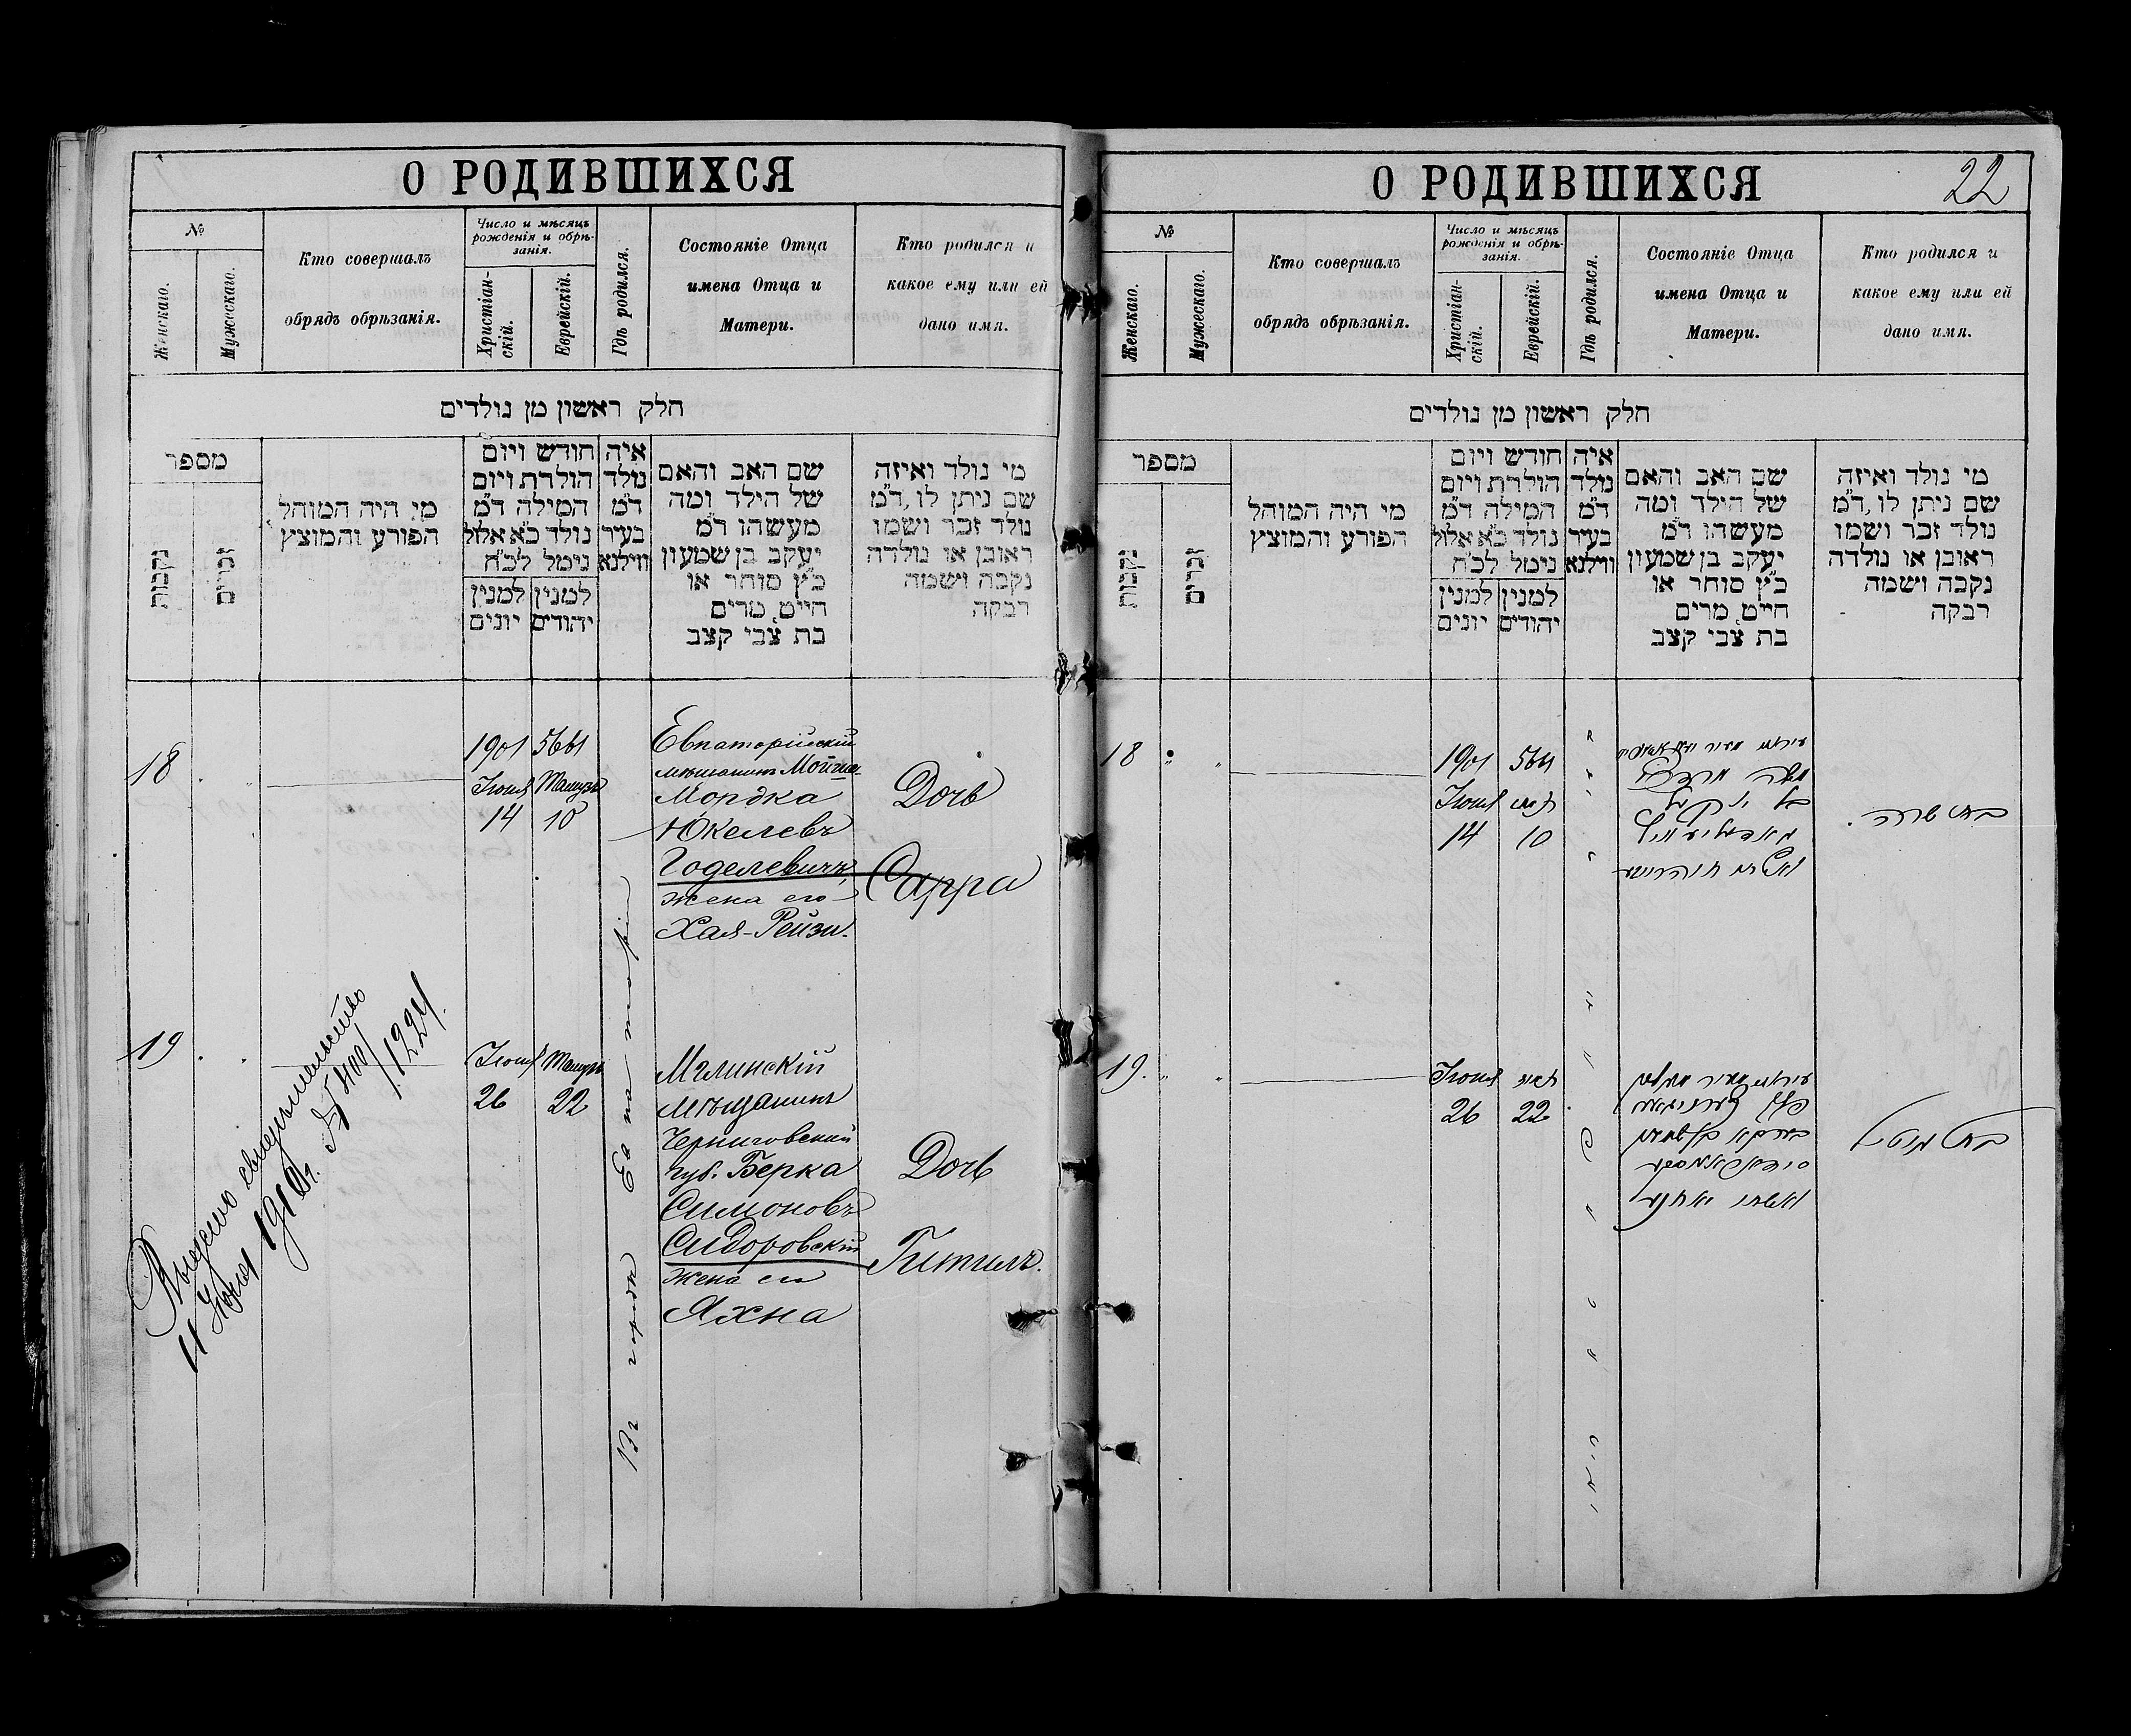 О РОДИВШИХСЯ
№
Женскаго.
Мужескаго.
Кто совершалъ
обрядъ обрѣзанія.
Число и мѣсяцъ
рожденія и обрѣ-
занія.
Христіан-
скій.
Еврейскій.
Гдѣ родился.
Состояніе Отца
имена Отца и
Матери.
Кто родился и
какое ему или ей
дано имя.
חלק ראשון מן נולדים
מספר
נקבות
זכרים
מי היה המוהל
הפורע והמוצץ
חודש ויום
הולדת ויום
המילה ד״מ
נולד כ״א אלול
נימל לכ״ח
למנין
יונים
למנין
יהודים
איה
נולד
ד״מ
בעיר
ווילנא
שם האב והאם
של הילד ומה
מעשהו ד״מ
יעקב בן שמעון
כ״ץ סוחר או
חייט, מרים
בת צבי קצב
מי נולד ואיזה
שם ניתן לו, ד״מ
נולד זכר ושמו
ראובן או נולדה
נקבה וישמה
רבקה
18
1901
Іюня
14
5661
Тамузъ
10
Евпаторійскій
мѣщанинъ Мойше
Мордка
Юкелевъ
Годелевичъ,
жена его
Хая-Рейзи.
Дочь
Сарра
19
Выдано свидѣтельство
11 Іюня 1916 г. №
Іюня
26
Тамузъ
22
Въ городѣ
Мглинскій
мѣщанинъ
Черниговской
губ. Берка
Симоновъ
Сидоровскій
жена его
Яхна
Дочь
Гитиль.
О РОДИВШИХСЯ
22
№
Женскаго.
Мужескаго.
Кто совершалъ
обрядъ обрѣзанія.
Число и мѣсяцъ
рожденія и обрѣ-
занія.
Христіан-
скій.
Еврейскій.
Гдѣ родился.
Состояніе Отца
имена Отца и
Матери.
Кто родился и
какое ему или ей
дано имя.
חלק ראשון מן נולדים
מספר
נקבות
זכרים
מי היה המוהל
הפורע והמוצץ
חודש ויום
הולדת ויום
המילה ד״מ
נולד כ״א אלול
נימל לכ״ח
למנין
יונים
למנין
יהודים
איה
נולד
ד״מ
בעיר
ווילנא
שם האב והאם
של הילד ומה
מעשהו ד״מ
יעקב בן שמעון
כ״ץ סוחר או
חייט, מרים
בת צבי קצב
מי נולד ואיזה
שם ניתן לו, ד״מ
נולד זכר ושמו
ראובן או נולדה
נקבה וישמה
רבקה
18
1901
Іюня
14
5661
תמוז
10
בת שרה.
19.
Іюня
26
תמוז
22